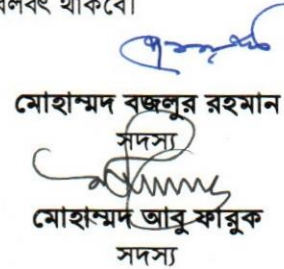 বলবৎ থাকবে।
মোহাম্মদ বজলুর রহমান
সদস্য
মোহাম্মদ আবু ফারুক
সদস্য